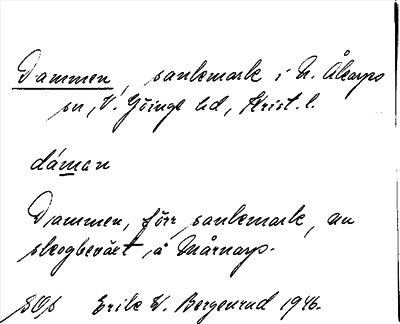 Dammen, sankmark i N. Åkarps
sn, V. Göinge hd, Krist. l.
dáman
Dammen, förr sankmark, nu
skogbeväxt, å Mårnarp.
Erik W. Bergenrud 1946.